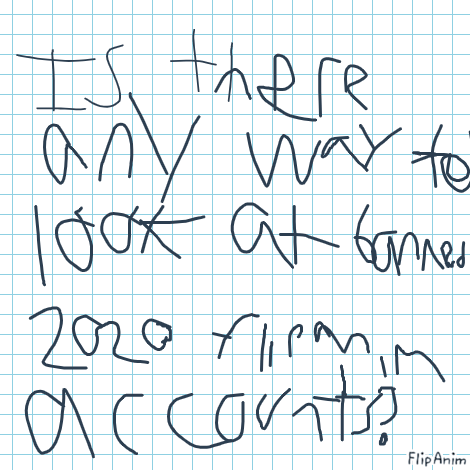 Is there
any way to
look at banned
2020 flipanim
accounts?
FlipAnim